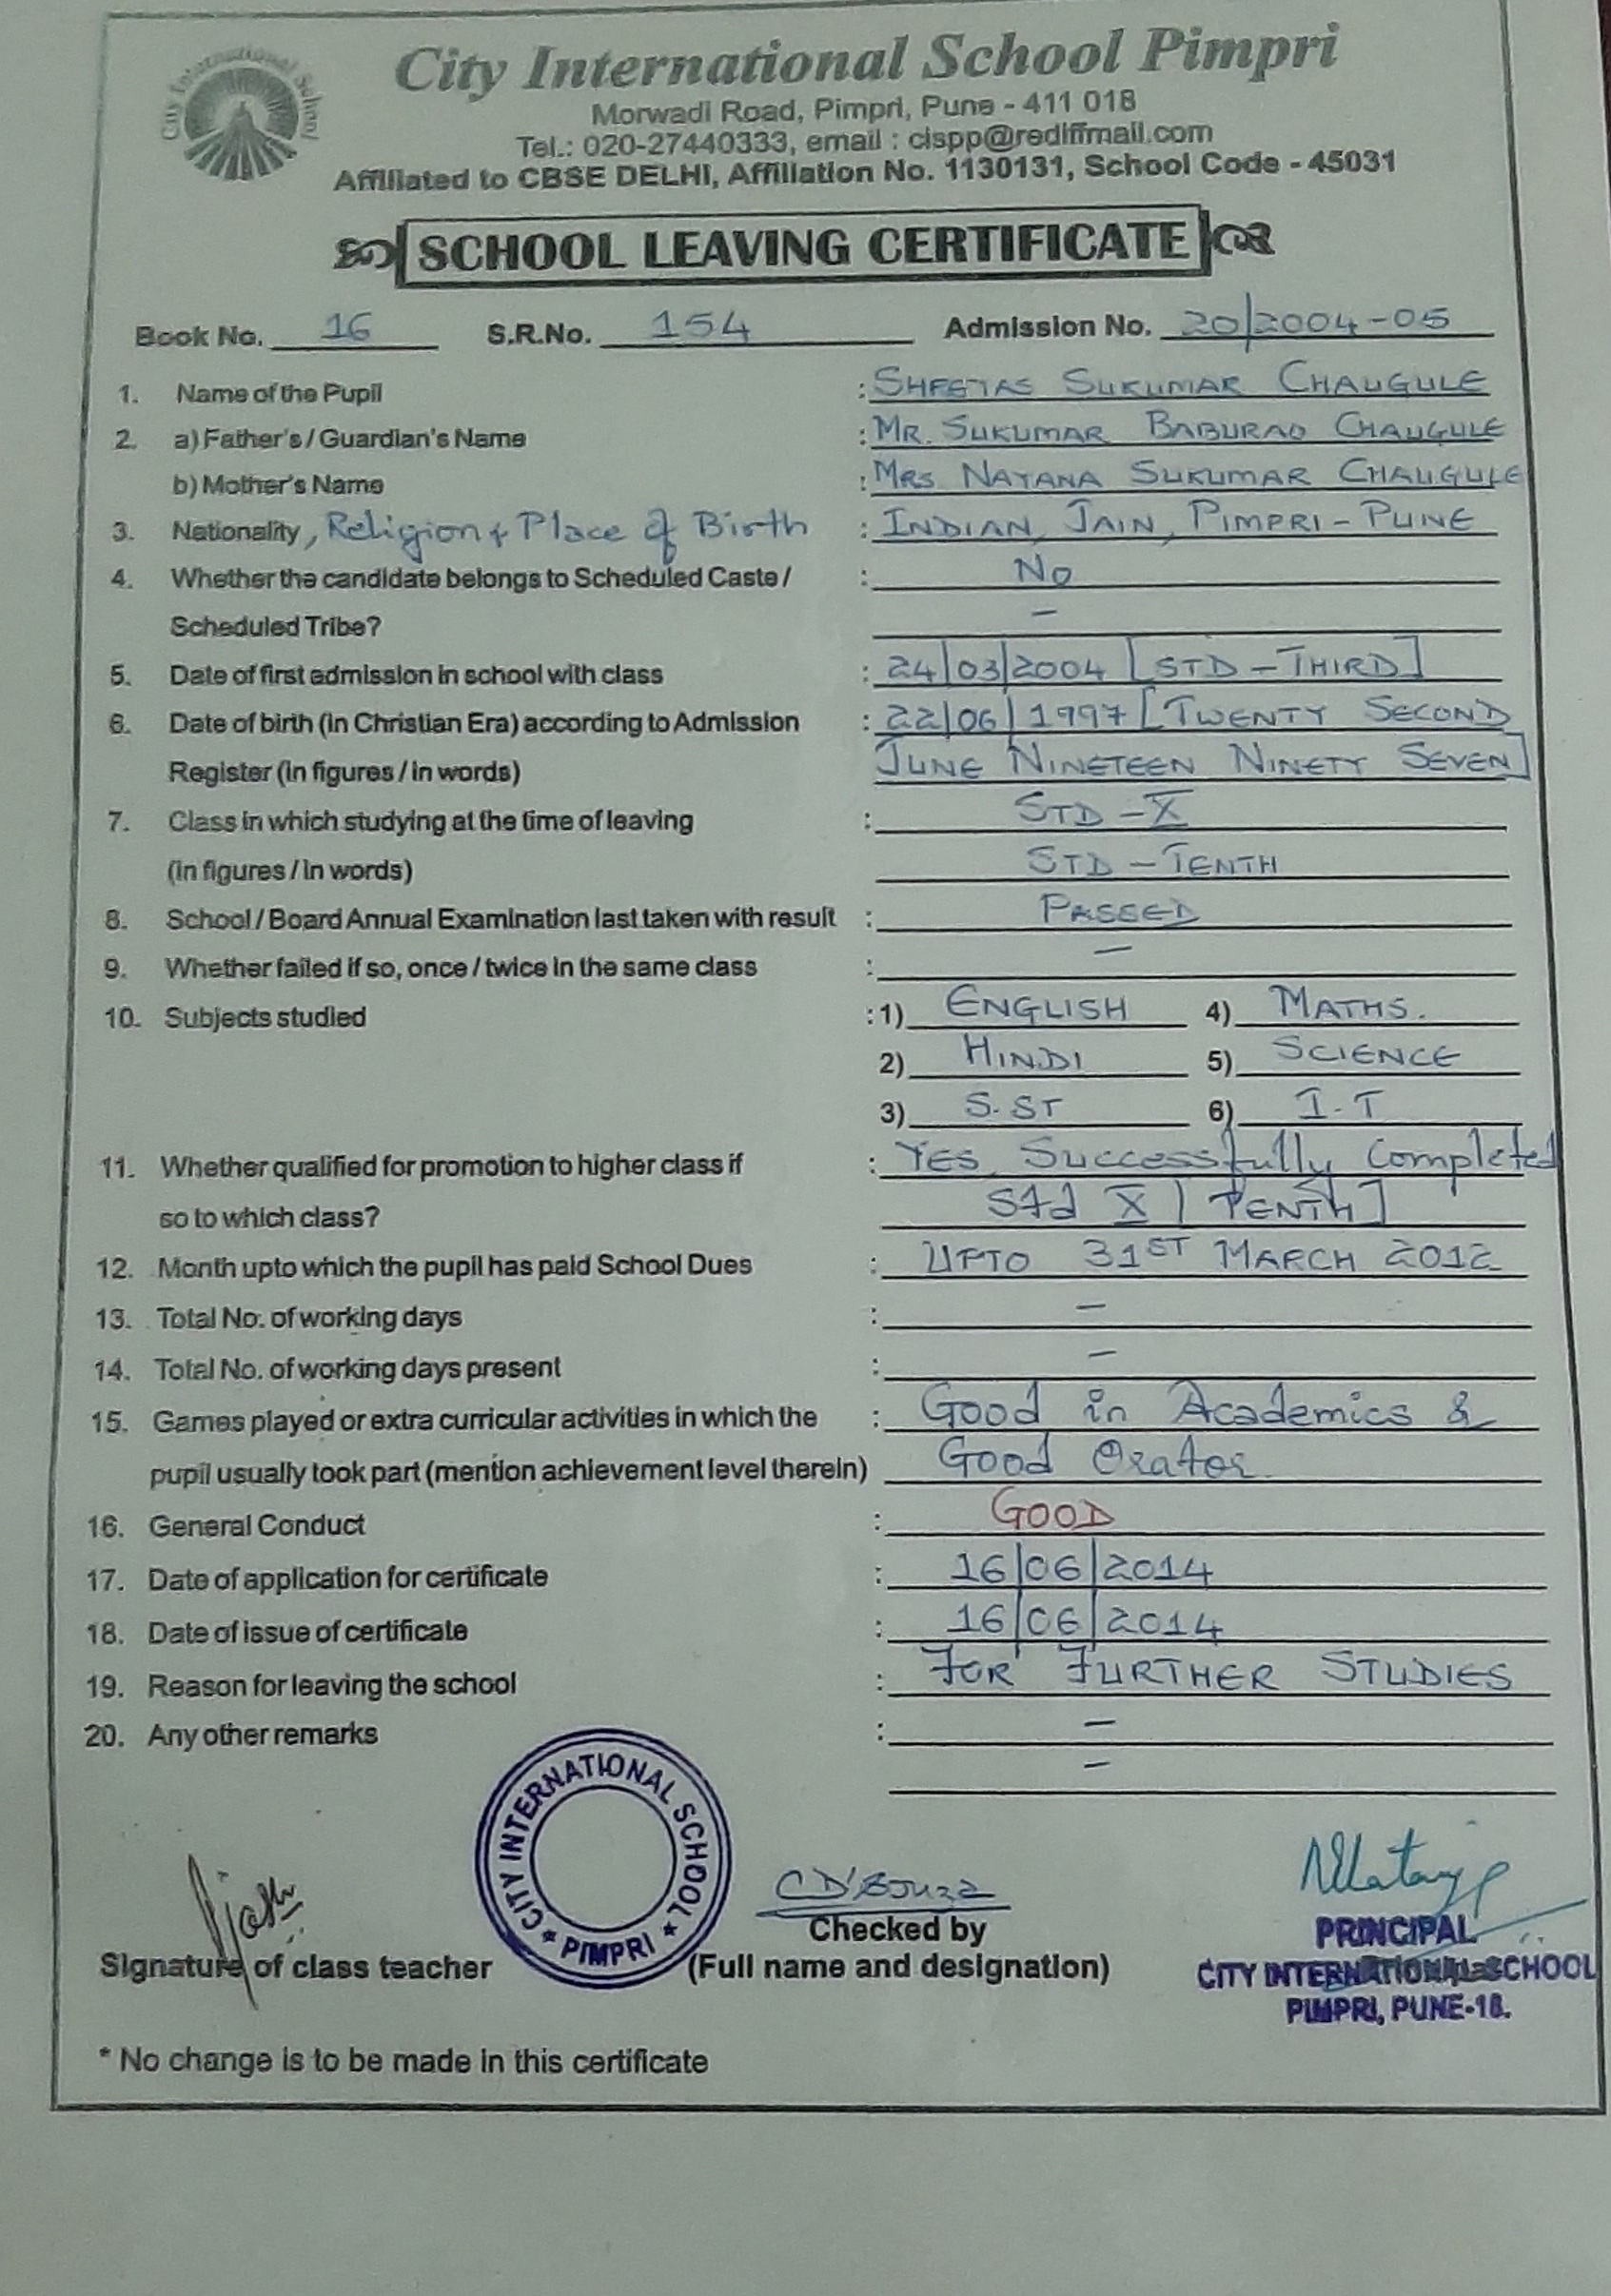 City International School
City International School Pimpri
Morwadi Road, Pimpri, Pune - 411 018
Tel.: 020-27440333, email : cispp@rediffmail.com
Affiliated to CBSE DELHI, Affiliation No. 1130131, School Code - 45031
SCHOOL LEAVING CERTIFICATE
Book No. 16 S.R.No. 154 Admission No. 20/2004-05
1. Name of the Pupil : SHREYAS SUKUMAR CHAUGULE
2. a) Father's / Guardian's Name : MR. SUKUMAR BABURAO CHAUGULE
b) Mother's Name : MRS. NAYANA SUKUMAR CHAUGULE
3. Nationality, Religion & Place of Birth : INDIAN, JAIN, PIMPRI - PUNE
4. Whether the candidate belongs to Scheduled Caste / : NO
Scheduled Tribe? -
5. Date of first admission in school with class : 24/03/2004 [STD - THIRD]
6. Date of birth (in Christian Era) according to Admission : 22/06/1997 [TWENTY SECOND
Register (in figures / in words) JUNE NINETEEN NINETY SEVEN]
7. Class in which studying at the time of leaving : STD - X
(in figures / in words) STD - TENTH
8. School / Board Annual Examination last taken with result : PASSED
9. Whether failed if so, once / twice in the same class : -
10. Subjects studied : 1) ENGLISH 4) MATHS.
2) HINDI 5) SCIENCE
3) S.ST 6) I.T
11. Whether qualified for promotion to higher class if : YES, Successfully Completed
so to which class? Std X [TENTH]
12. Month upto which the pupil has paid School Dues : UPTO 31ST MARCH 2012
13. Total No. of working days : -
14. Total No. of working days present : -
15. Games played or extra curricular activities in which the : Good in Academics &
pupil usually took part (mention achievement level therein) Good Orator.
16. General Conduct : GOOD
17. Date of application for certificate : 16/06/2014
18. Date of issue of certificate : 16/06/2014
19. Reason for leaving the school : FOR FURTHER STUDIES
20. Any other remarks : -
-
CITY INTERNATIONAL SCHOOL
* PIMPRI *
C D'Souza
Checked by
PRINCIPAL
Signature of class teacher (Full name and designation) CITY INTERNATIONAL SCHOOL
PIMPRI, PUNE-18.
* No change is to be made in this certificate